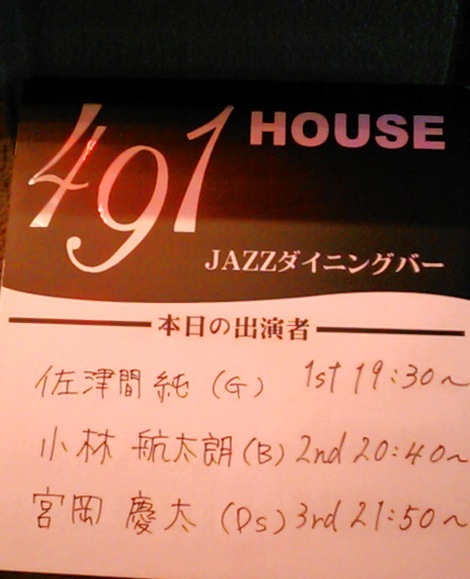 491 HOUSE
JAZZダイニングバー
本日の出演者
佐津間純 (G) 1st 19:30~
小林 航太朗 (B) 2nd 20:40~
宮岡 慶太 (Ds) 3rd 21:50~